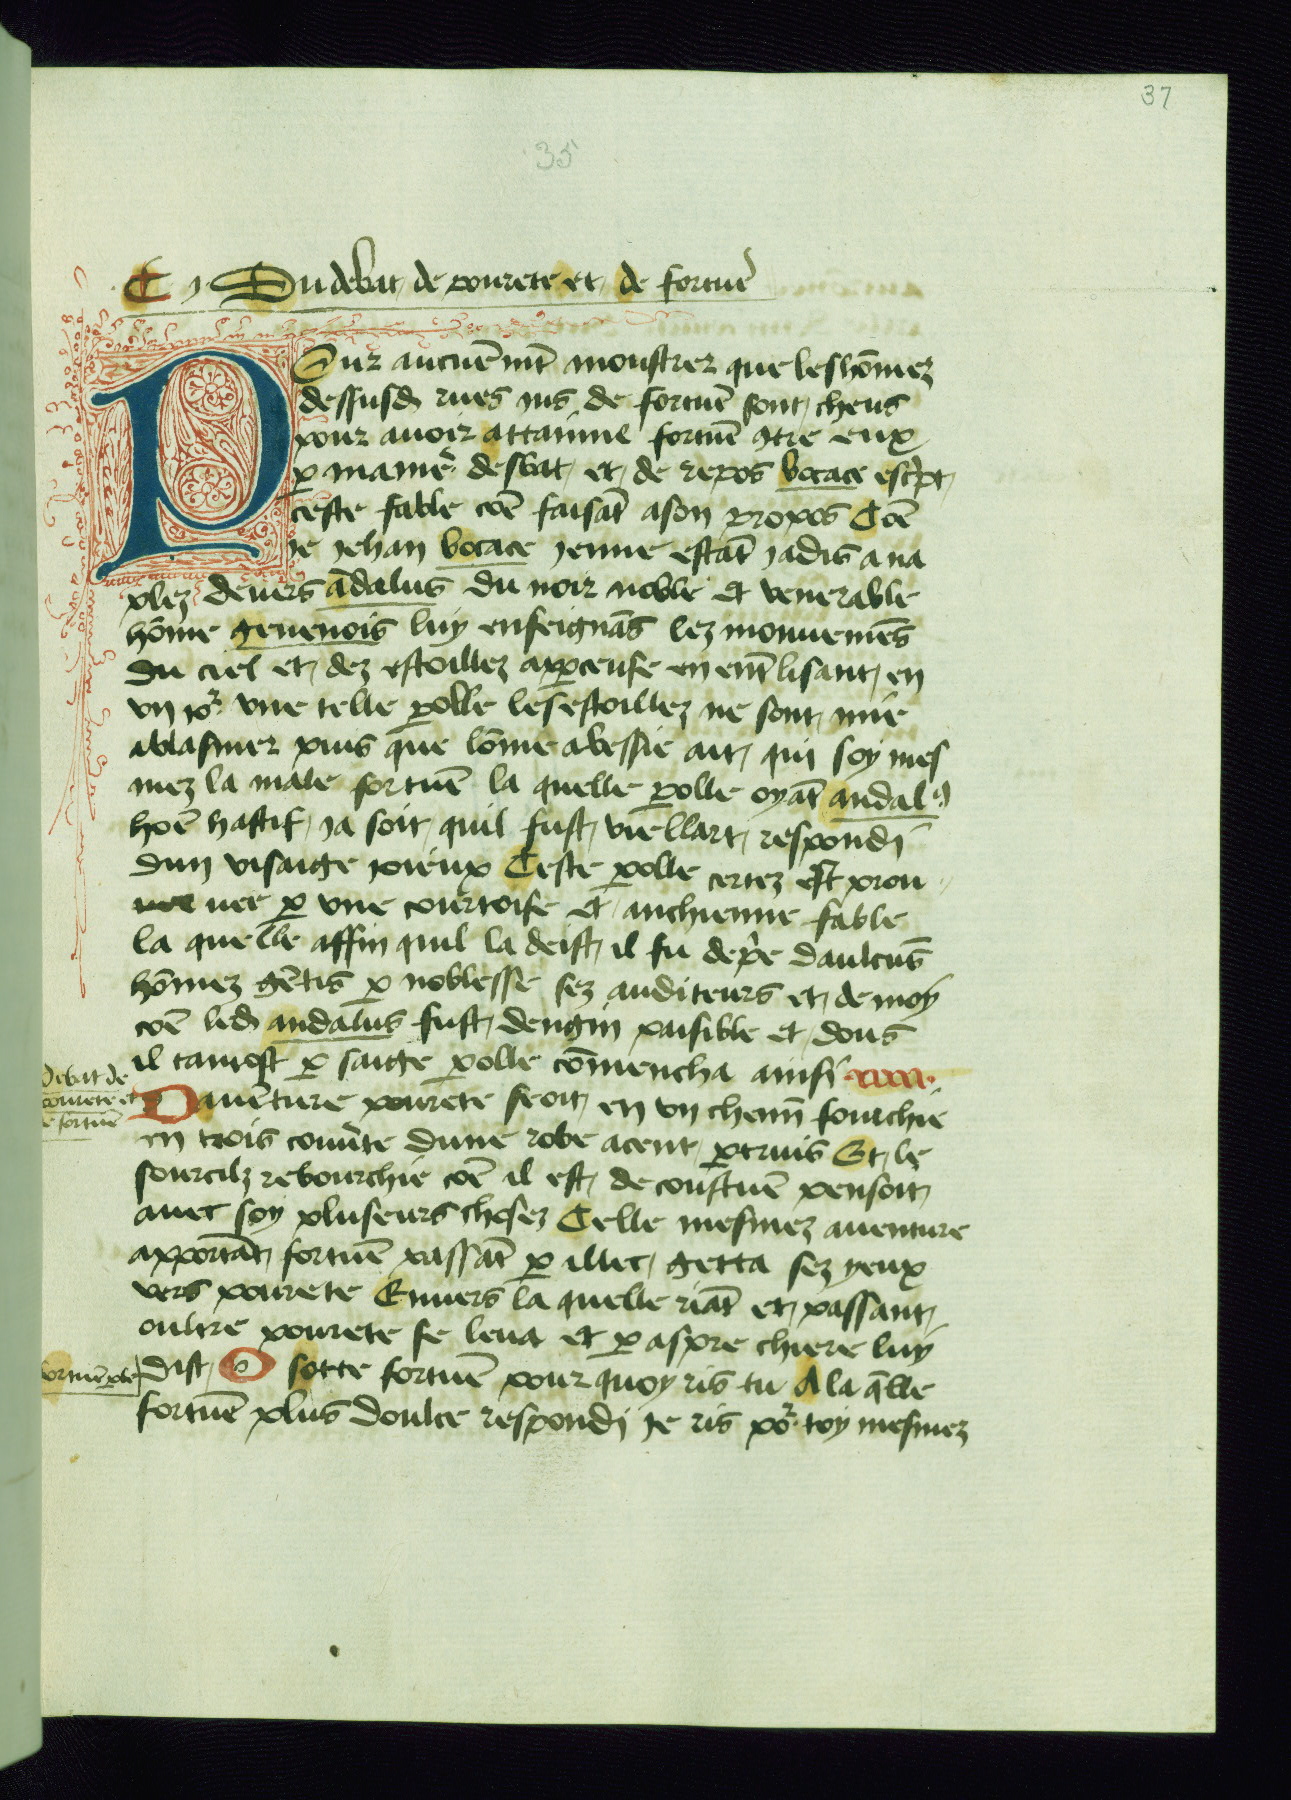 37
35
C j Du debat de pourete et de fortuē
POur aucunēmt moustrer que les hōmez
dessusd rues jus de fortuē sont cheus
pour auoir attainne fortuē ꝯtre eux
ꝑ manieʳ desbat et de repos bocace escͥpt
ceste fable cōe faisāt a son propos Cōe
je jehan bocace jenne estāt jadis a na
plez deuers ādalus du noir noble et venerable
hōme geuenois luy enseignās lez mouuemēs
du ciel et dez estoillez apꝑceusse en emͭ lisant en
vn joʳ vne telle ꝑolle les estoillez ne sont mie
ablasmer puis que lōme abessie ait qui soy mes
mez la male fortuē la quelle ꝑolle oyāt andalꝰ
hōe hastif ja soit quil fust viellart respondi
dun visaige joieux Ceste ꝑolle certez est prou
uee ꝑ vne courtoise et anchienne fable
la quelle affin quil la deist il fu depͥe daulcūs
hōmez gētis ꝑ noblesse sez auditeurs et de moy
cōe led andalus fust dengin paisible et dous
il tantost ꝑ saige ꝑolle cōmencha ainsi
Debat de
pourete et
de fortuē
Dauēture pourete seoit en vn chemī fourchie
en trois couūte dune robe a cent ꝑtruis Et le
sourcilz rebourchie cōe il est de coustuē pensoit
auec soy pluseurs chosez Celle mesmez auenture
apportāt fortuē passāt ꝑ illec getta sez yeux
vers pourete Enuers la quelle riāt et passant
oultre pourete se leua et ꝑ aspre chiere luy
fortuē ple
dist O sotte fortuē pour quoy ris tu A la q̄lle
fortuē plus doulce respondi je ris poʳ toy mesmez